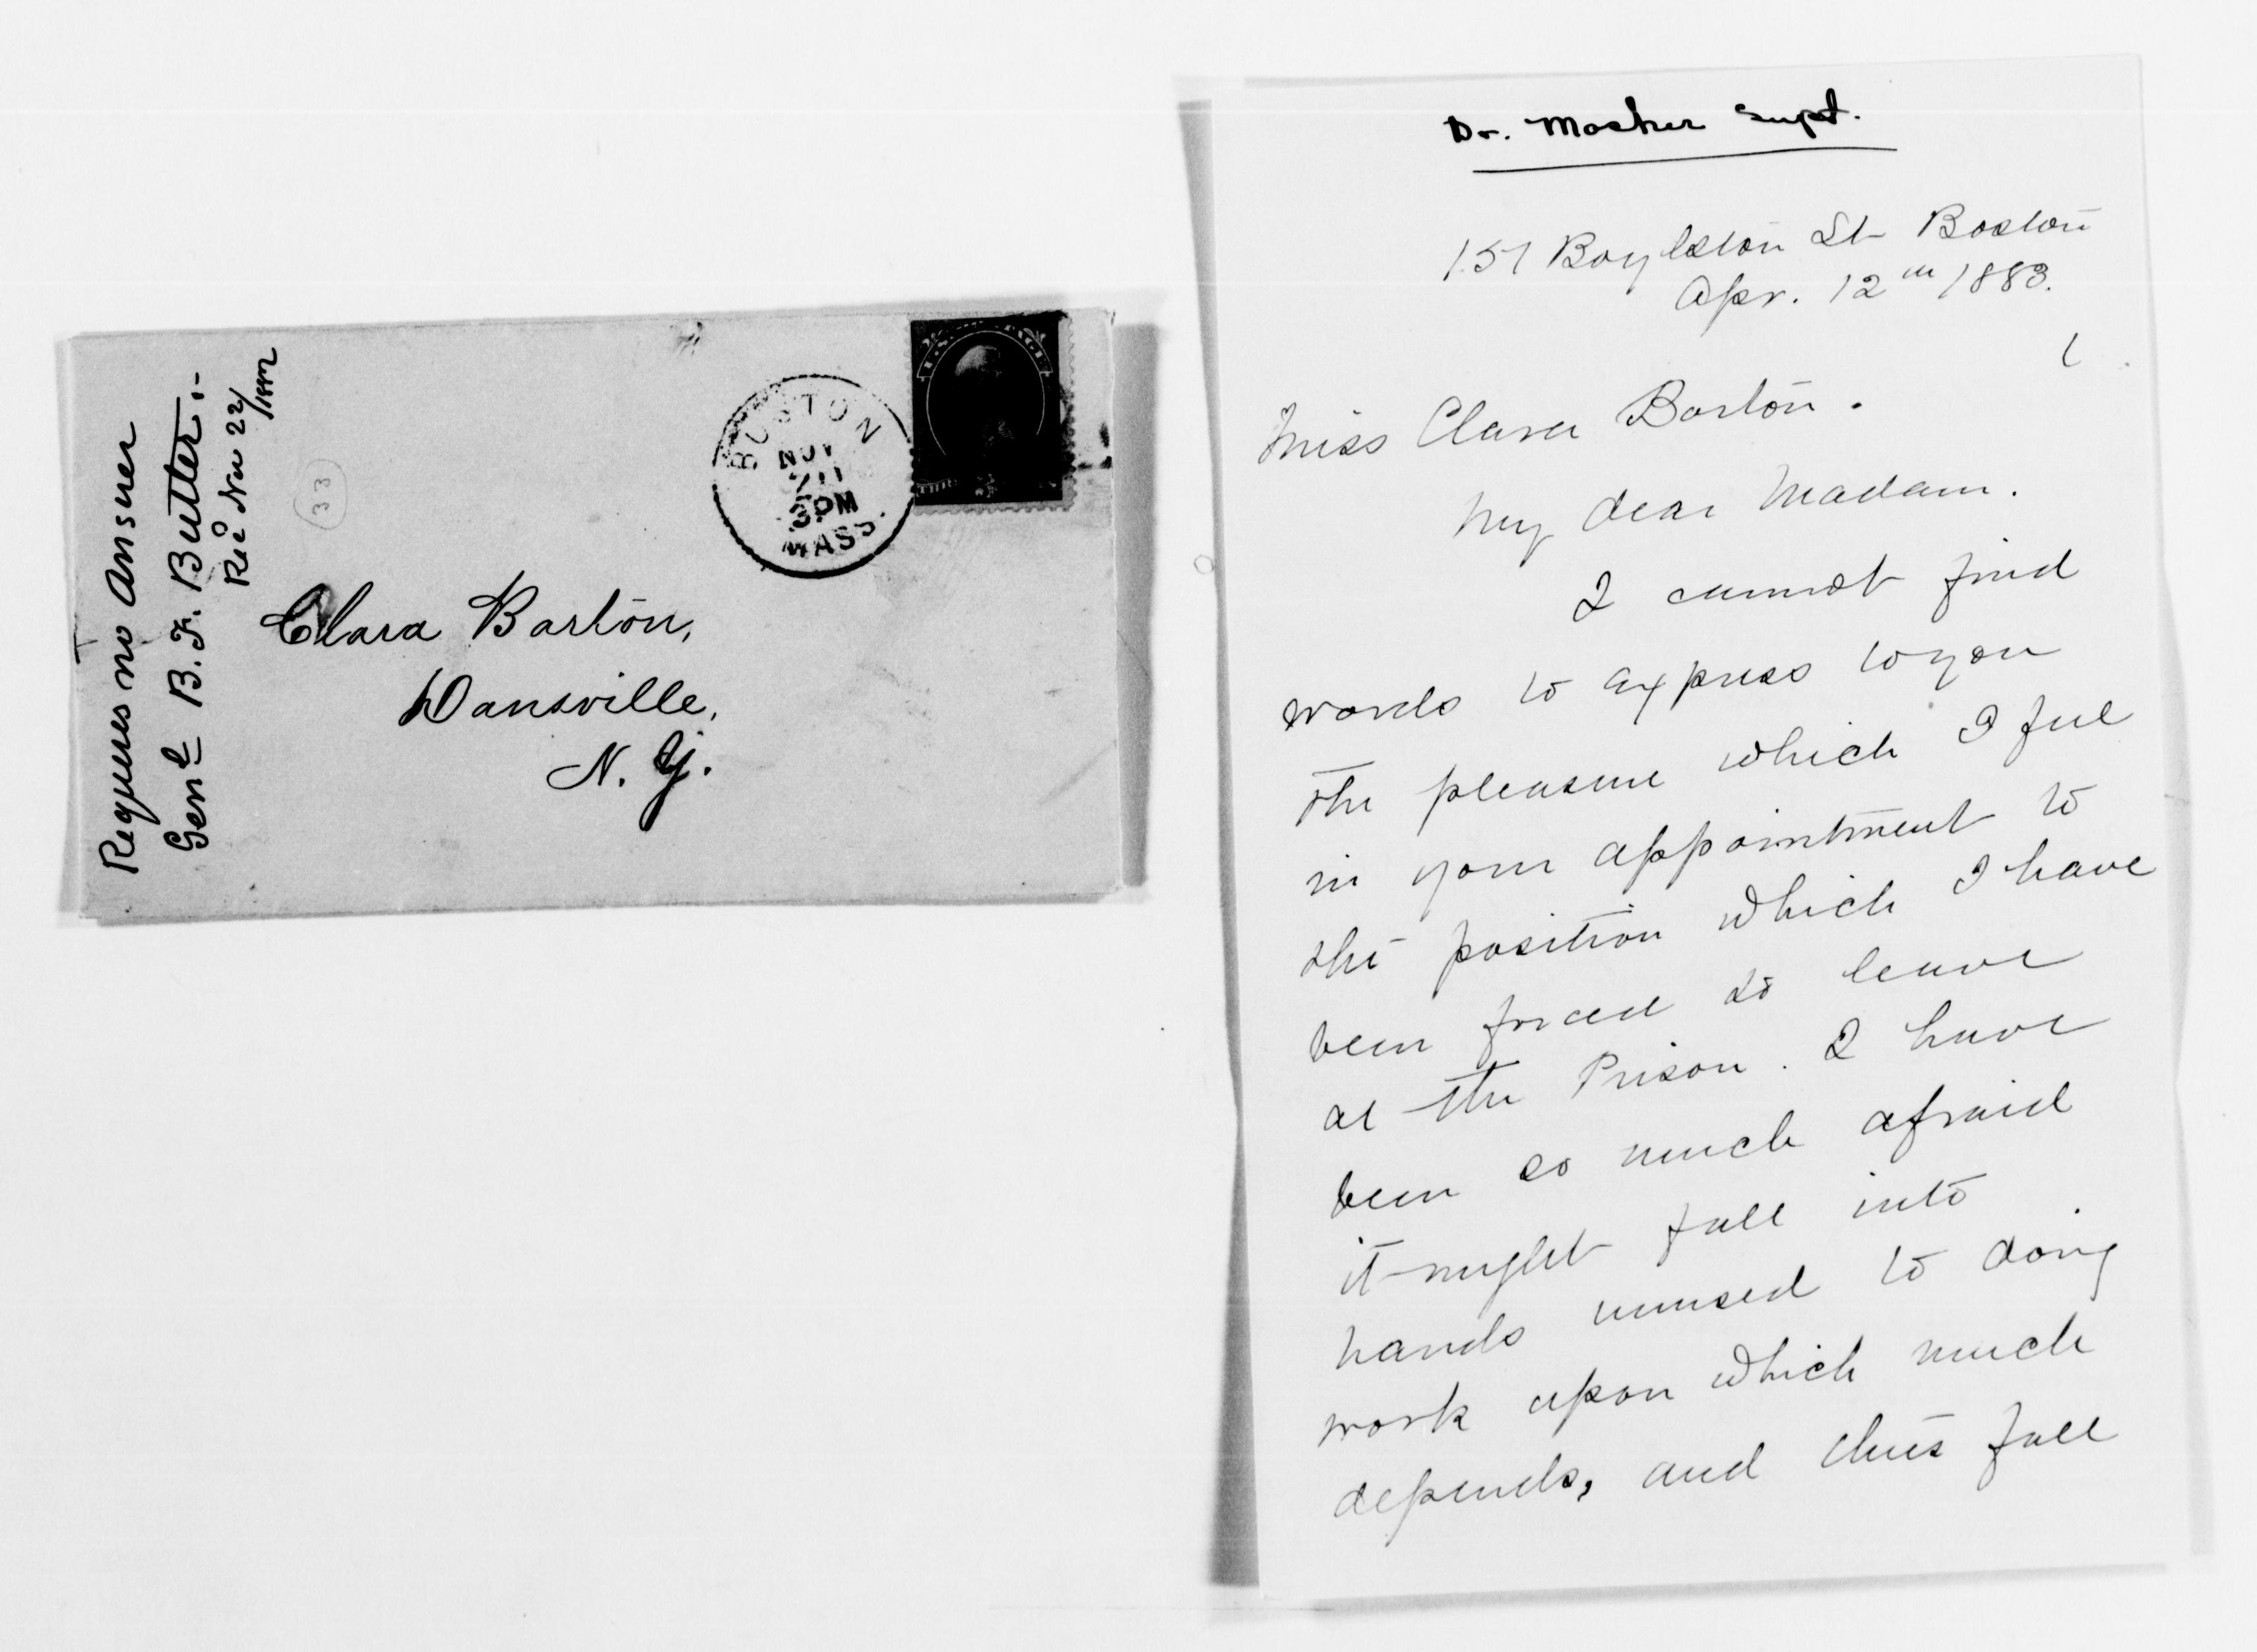 Requires no Answer
Genl B. F. Butler:-
Recd Nov 22/1882
33
BOSTON
NOV
3PM
MASS.
Clara Barton,
Dansville,
N. Y.
Dr. Mosher Supt.
151 Boylston St Boston
Apr. 12th 1883.
Miss Clara Barton.
My dear Madam.
I cannot find
words to express to you
the pleasure which I feel
in your appointment to
the position which I have
been forced to leave
at the Prison. I have
been so much afraid
it might fall into
hands unused to doing
work upon which much
depends, and thus fall